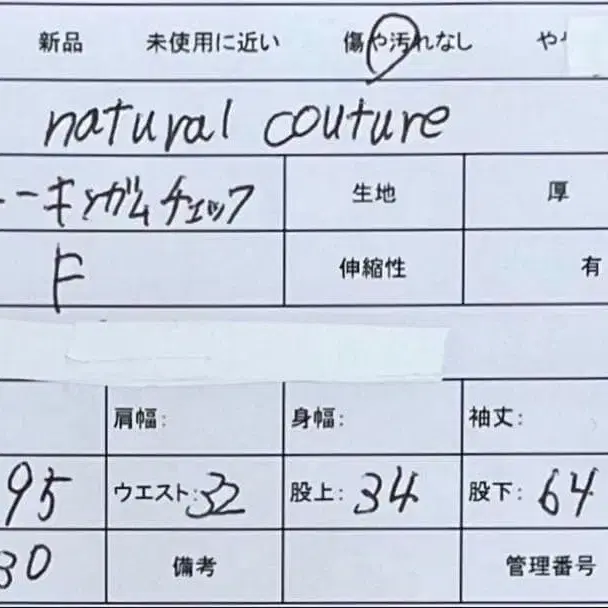 新品 未使用に近い 傷や汚れなし や
natural couture
ーキ×ガムチェック 生地 厚
F 伸縮性 有
肩幅: 身幅: 袖丈:
95 ウエスト:32 股上:34 股下:64
30 備考 管理番号